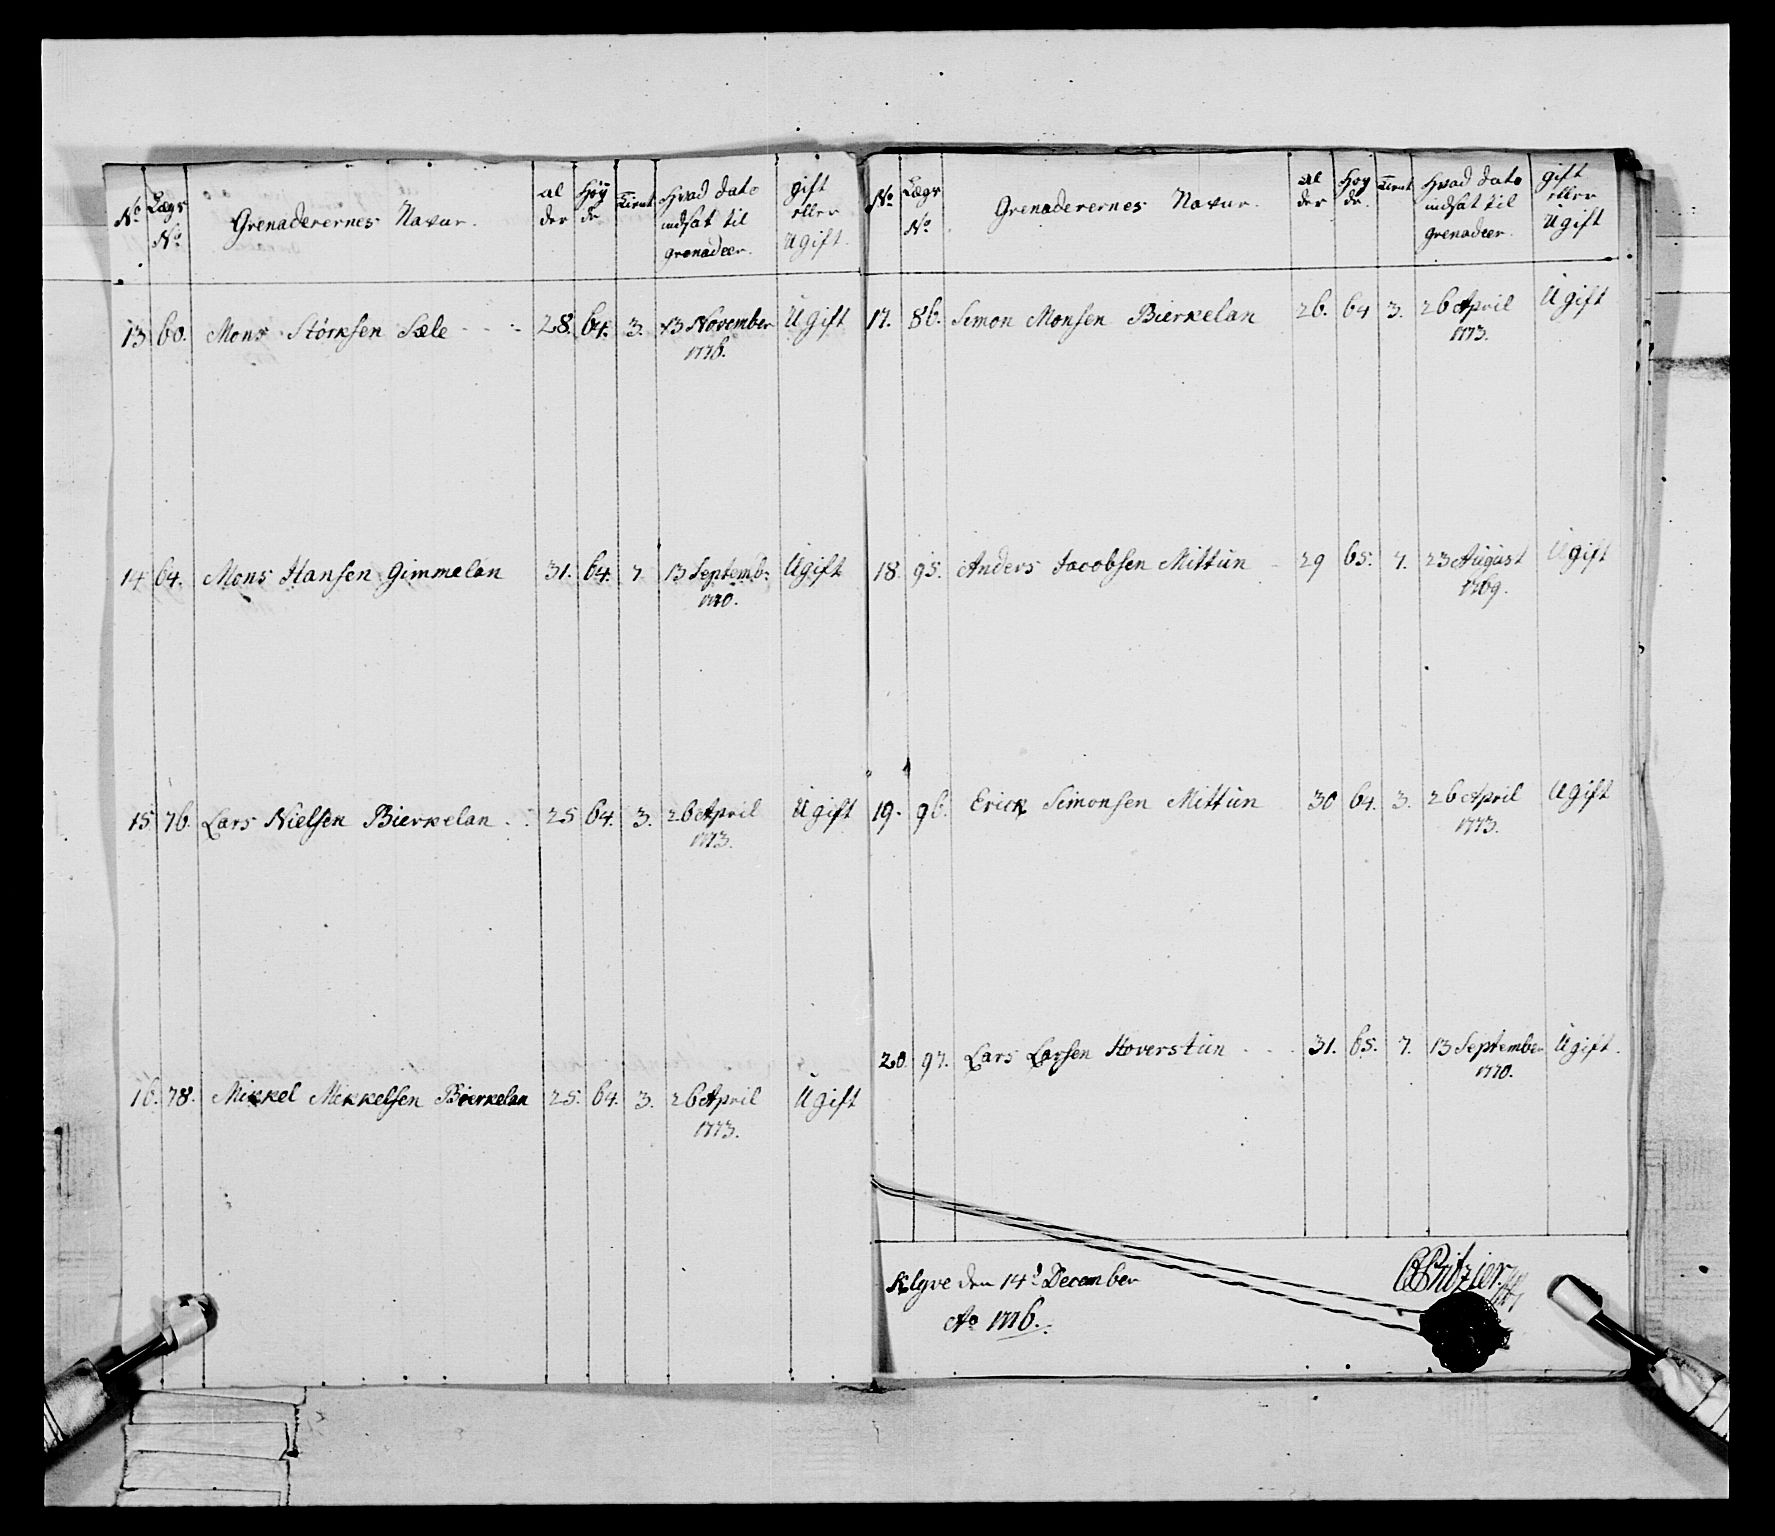 No Lægs No Grenaderernes Navne. al der Höy de Tient Hvad Dato indsat til grenadeer. gift eller Ugift.
13 60. Mons Störksen Sæle 28. 64. 3. 13 November 1776. Ugift
14 64. Mons Hansen Gimmelan 31. 64. 7. 13 Septemb: 1770. Ugift
15 76. Lars Nielsen Bierkelan 25 64. 3. 26 April 1773. Ugift
16. 78. Mikkel Mikkelsen Bierkelan 25. 64. 3. 26 April 1773. Ugift
No Lægs No Grenaderernes Navne. al der Höy de Tient Hvad Dato indsat til grenadeer. gift eller Ugift
17. 86. Simon Monsen Bierkelan 26. 64 3. 26 April 1773. Ugift
18. 95. Anders Jacobsen Mittun 29 65. 7. 23 August 1769. Ugift
19. 96. Erick Simonsen Mittun 30 64. 3. 26 April 1773. Ugift
20. 97. Lars Larsen Hoverstun 31. 65. 7. 13 September 1770. Ugift.
Klyve den 14d December
Ao 1776.